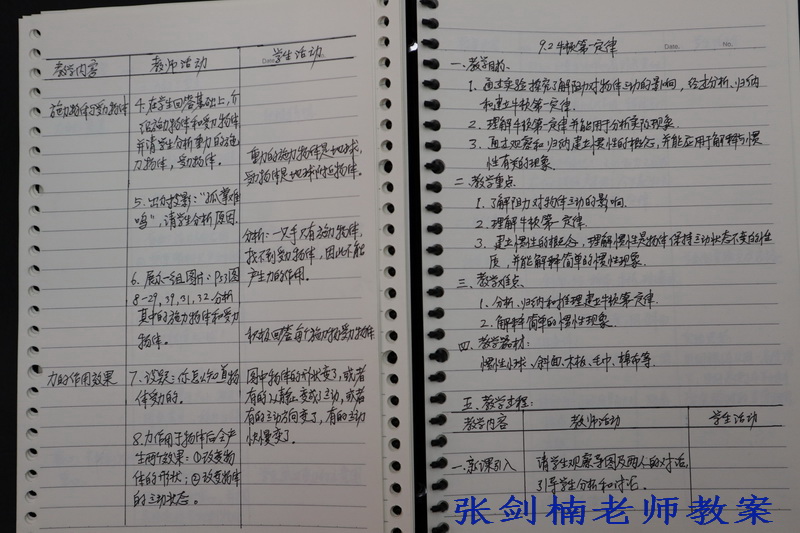 教学内容
教师活动
学生活动
施力物体与受力物体
4.在学生回答基础上,介
绍施力物体和受力物体
并请学生分析重力的施
力物体,受力物体。
重力的施力物体是地球,
受力物体是地球附近物体。
5.出示投影:“孤掌难
鸣”,请学生分析原因.
分析:一只手只有施力物体,
找不到受力物体,因此不能
产生力的作用。
6.展示一组图片:P53图
8-29,30,31,32分析
其中的施力物体和受力
物体。
积极回答每个施力物受力物体
力的作用效果
7.设疑:你怎么知道物
体受力的。
图中物体的形状变了,或者
有的从静止变成了运动,或者
有的运动方向变了,有的运动
快慢变了。
8.力作用于物体后会产
生两个效果:①改变物
体的形状;②改变物体
的运动状态。
9.2牛顿第一定律
Date.
No.
一.教学目标.
1.通过实验探究了解阻力对物体运动的影响,经过分析、归纳
和建立牛顿第一定律.
2.理解牛顿第一定律并能用于分析实际现象.
3.通过观察和归纳建立惯性的概念,并能应用于解释与惯
性有关的现象.
二.教学重点
1.了解阻力对物体运动的影响.
2.理解牛顿第一定律.
3.建立惯性的概念,理解惯性是物体保持运动状态不变的性
质,并能解释简单的惯性现象.
三.教学难点
1.分析、归纳和推理建立牛顿第一定律.
2.解释简单的惯性现象.
四.教学器材:
惯性小球、斜面、木板、毛巾、棉布等.
五.教学过程:
教学内容
教师活动
学生活动
一.新课引入
请学生观察导图及两人的对话,
引导学生分析和讨论.
张剑楠老师教案